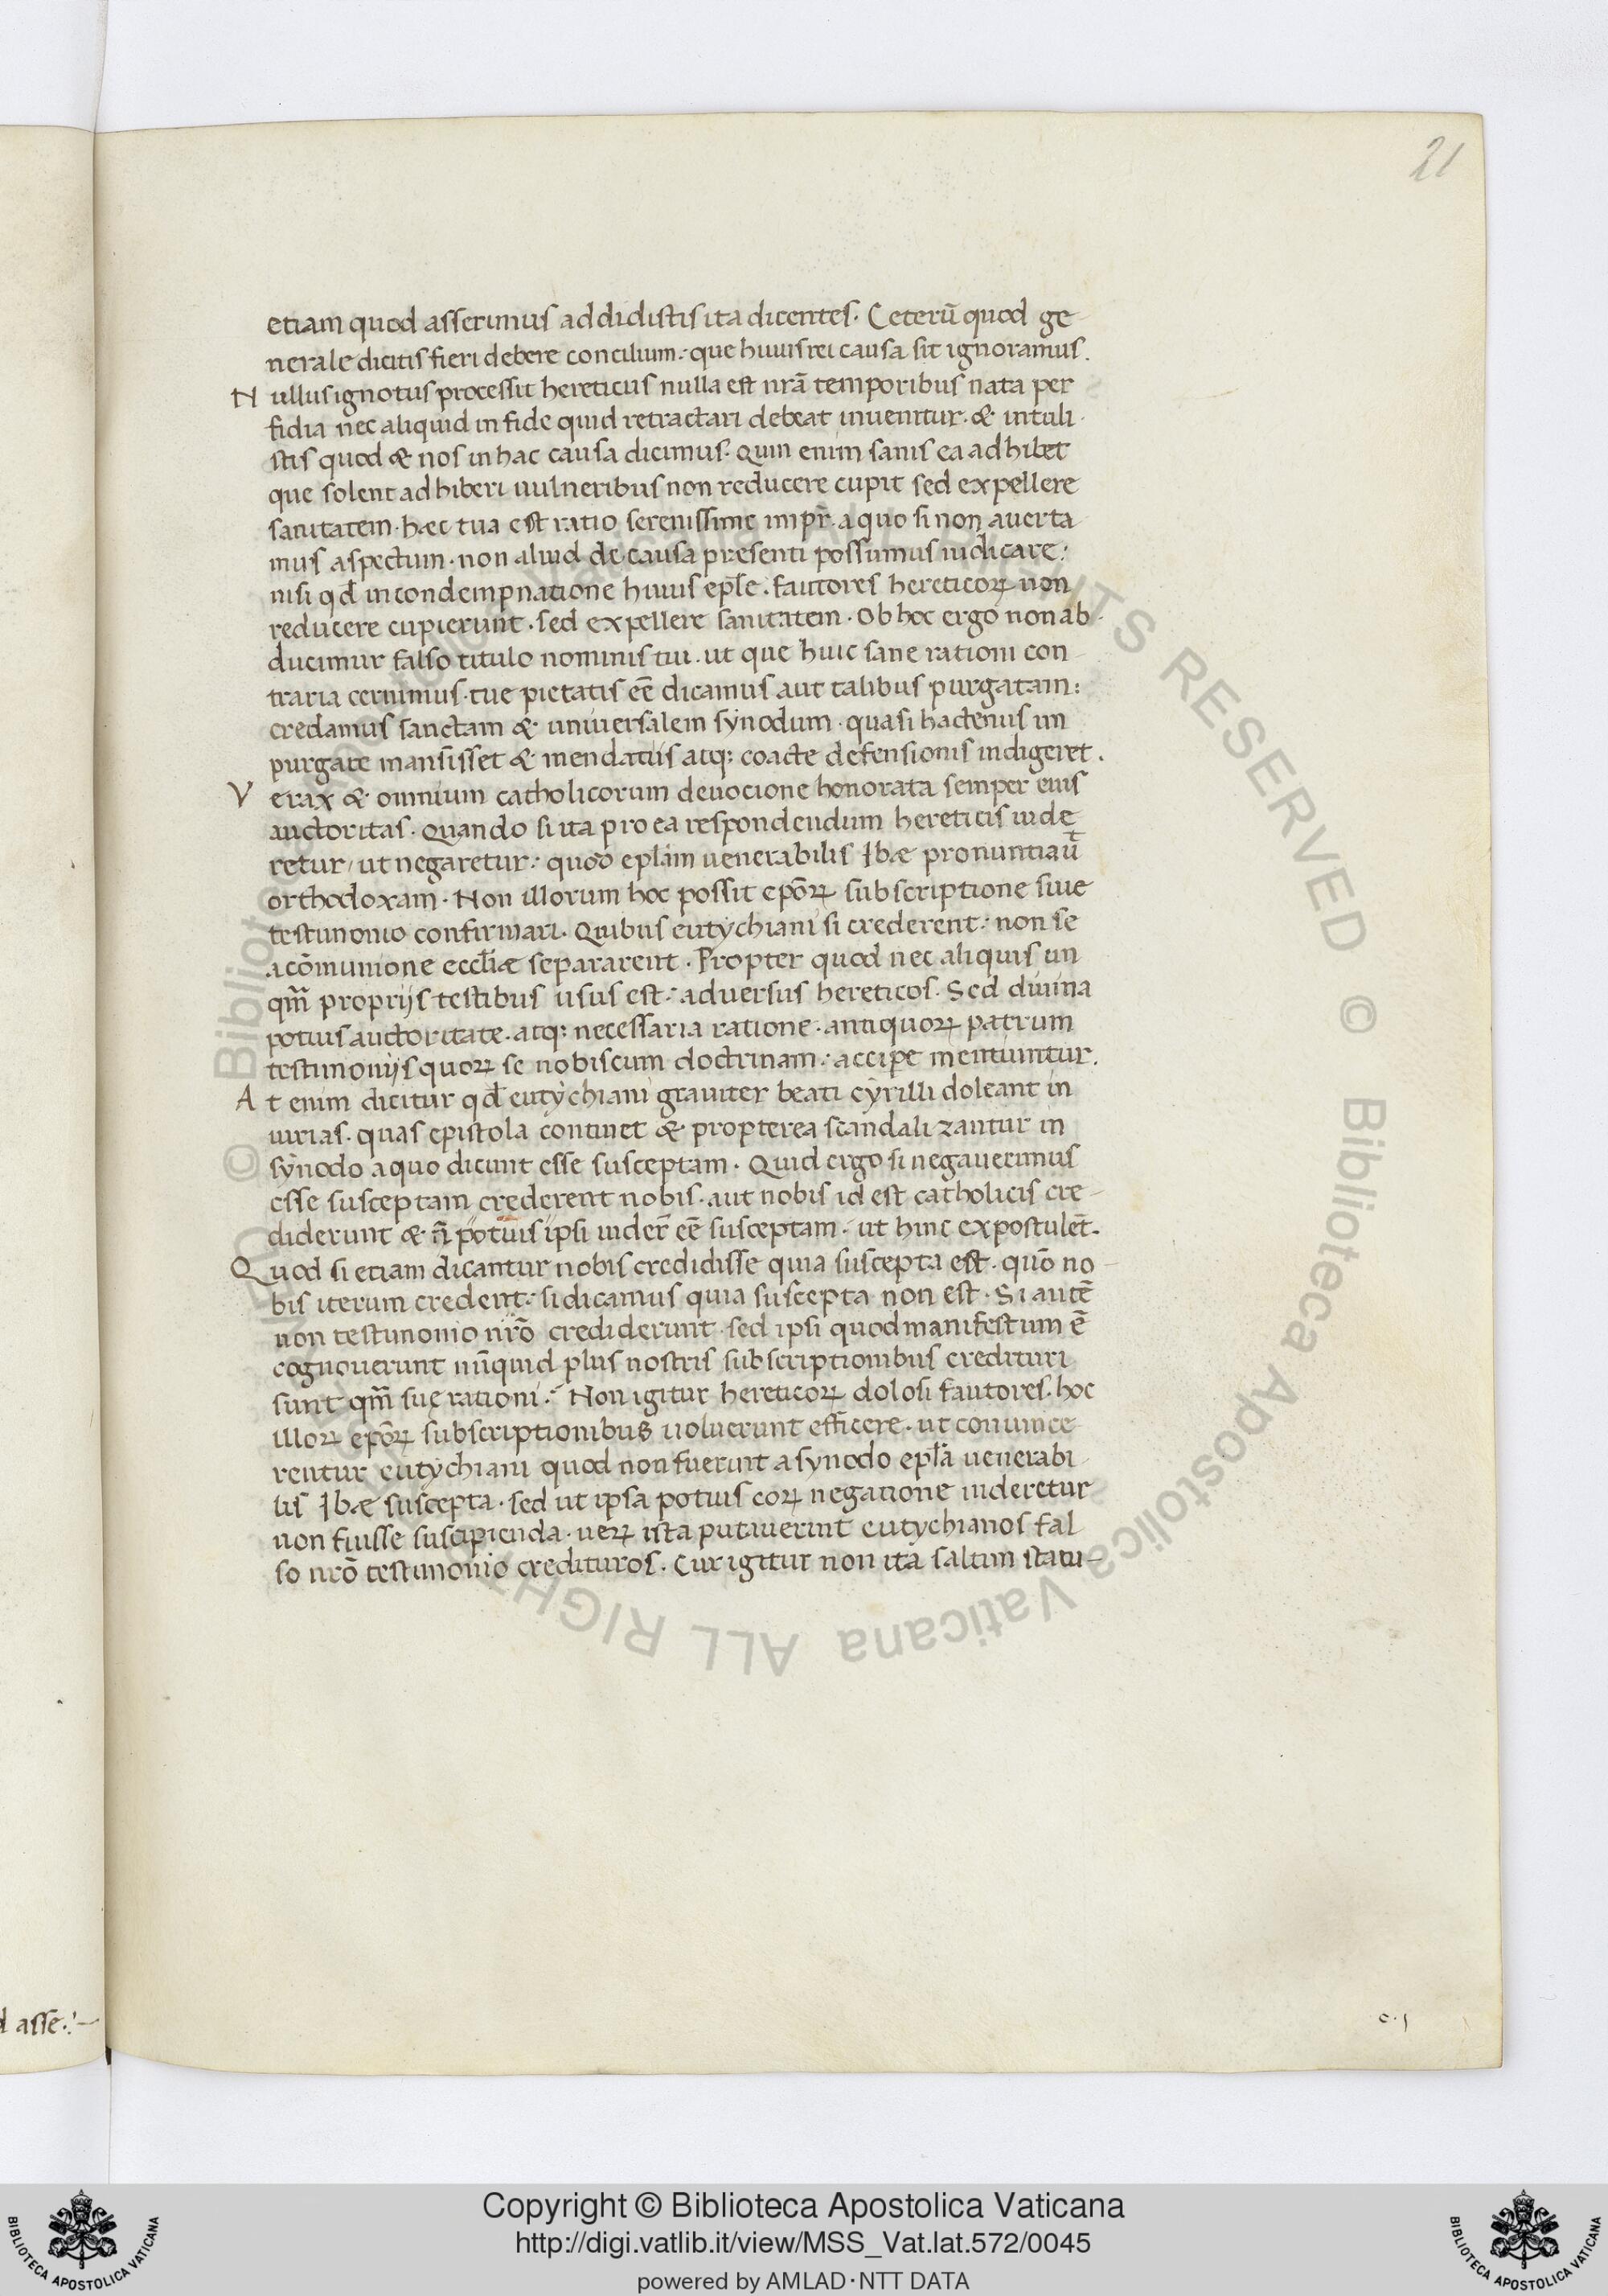 21
etiam quod asserimus addidistis ita dicentes. Ceterū quod ge
nerale dicitis fieri debere concilium: que huius rei causa sit ignoramus.
Nullus ignotus processit hereticus nulla est nrā temporibus nata per
fidia nec aliquid in fide quid retractari debeat inuenitur. & intuli
stis quod & nos in hac causa dicimus. Quin enim sanis ea adhibet
que solent adhiberi uulneribus non reducere cupit sed expellere
sanitatem. hæc tua est ratio serenissime impr̄. a quo si non auerta
mus aspectum. non aliud de causa presenti possumus iudicare:
nisi qđ in condempnatione huius epłe. fautores hereticoꝝ non
reducere cupierunt. sed expellere sanitatem. Ob hoc ergo non ab
ducimur falso titulo nominis tui. ut que huic sane rationi con
traria cernimus. tue pietatis eē dicamus aut talibus purgatam:
credamus sanctam & uniuersalem synodum. quasi hactenus im
purgate mansisset & mendatiis atq; coacte defensionis indigeret.
Verax & omnium catholicorum deuocione honorata semper eius
auctoritas. Quando si ita pro ea respondendum hereticis uide
retur, ut negaretur: quod eplam uenerabilis Ibæ pronuntiaūt
orthodoxam. Non illorum hoc possit epōꝝ subscriptione siue
testimonio confirmari. Quibus eutychiani si crederent: non se
a cōmunione eccłiæ separarent. Propter quod nec aliquis un
qm̄ proprijs testibus usus est: aduersus hereticos. Sed diuina
potius auctoritate. atq; necessaria ratione. antiquoꝝ patrum
testimonijs quoꝝ se nobiscum doctrinam: accipe mentiuntur.
At enim dicitur qđ eutychiani grauiter beati cyrilli doleant in
iurias. quas epistola continet & propterea scandalizantur in
synodo a quo dicunt esse susceptam. Quid ergo si negauerimus
esse susceptam crederent nobis. aut nobis id est catholicis cre-
diderunt & n̄ potius ipsi uider̄ eē susceptam. ut hinc expostulēt.
Quod si etiam dicantur nobis credidisse quia suscepta est. quō no-
bis iterum credent: si dicamus quia suscepta non est. Si autē
non testimonio nrō crediderunt. sed ipsi quod manifestum ē
cognouerunt nūquid plus nostris subscriptionibus credituri
sunt qm̄ sue rationi: Non igitur hereticoꝝ dolosi fautores. hoc
illoꝝ epōꝝ subscriptionibus uoluerunt efficere. ut conuince
rentur eutychiani quod non fuerint a synodo epła uenerabi
lis Ibæ suscepta. sed ut ipsa potius eoꝝ negatione uideretur
non fuisse suscipienda. ueꝝ ista putauerint eutychianos fal
so nrō testimonio credituros. Cur igitur non ita saltim statu-
d assē:-
c. j
© Biblioteca Apostolica Vaticana ALL RIGHTS RESERVED
© Biblioteca Apostolica Vaticana ALL RIGHTS RESERVED
BIBLIOTECA APOSTOLICA VATICANA
Copyright © Biblioteca Apostolica Vaticana
http://digi.vatlib.it/view/MSS_Vat.lat.572/0045
powered by AMLAD·NTT DATA
BIBLIOTECA APOSTOLICA VATICANA